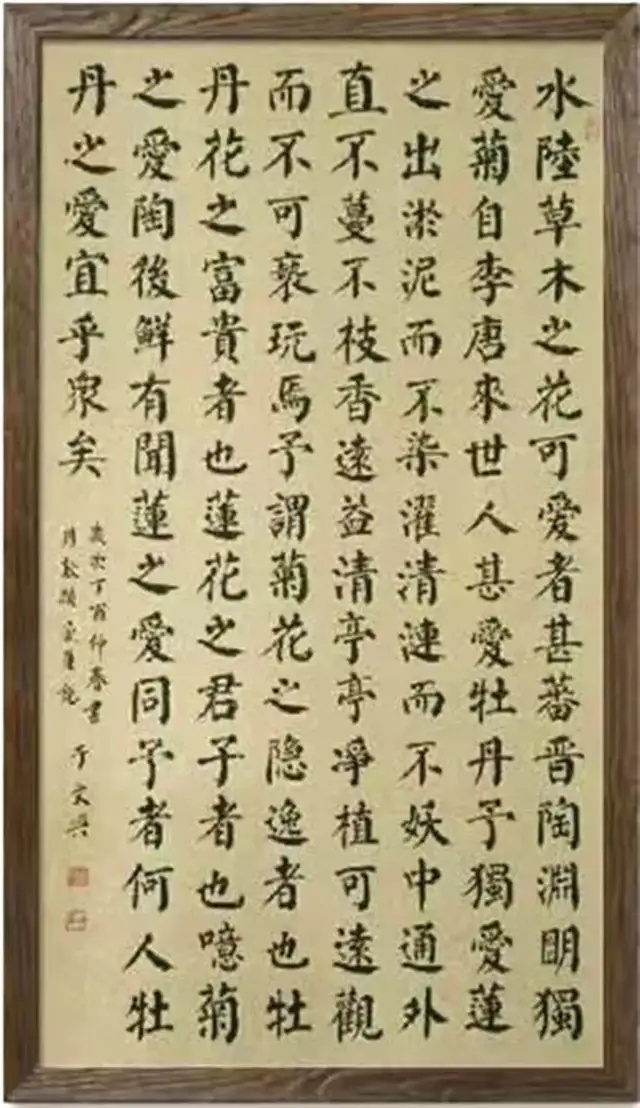 水陸草木之花可愛者甚蕃晋陶淵明獨
愛菊自李唐來世人甚愛牡丹予獨愛蓮
之出淤泥而不染濯清漣而不妖中通外
直不蔓不枝香遠益清亭亭凈植可遠觀
而不可褻玩焉予謂菊花之隐逸者也牡
丹花之富貴者也蓮花之君子者也噫菊
之愛陶後鮮有聞蓮之愛同予者何人牡
丹之愛宜乎眾矣
歲次丁酉仲春書
周敦頤愛蓮說
于文